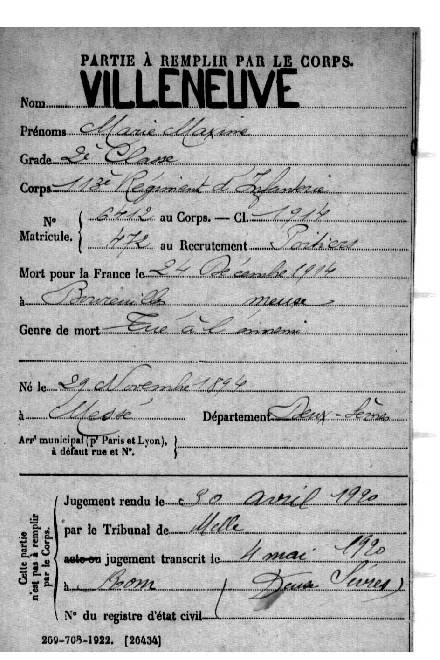 PARTIE À REMPLIR PAR LE CORPS.
Nom VILLENEUVE
Prénoms Marie Maxime
Grade 2e Classe
Corps 113e Régiment d'Infanterie
N° Matricule. { 6412 au Corps. — Cl. 1914
472 au Recrutement Poitiers
Mort pour la France le 24 Décembre 1914
à Boureuilles meuse
Genre de mort Tué à l'ennemi
Né le 29 Novembre 1894
à Messé Département Deux-Sèvres
Arrt municipal (pr Paris et Lyon),
à défaut rue et N°.
Cette partie n'est pas à remplir par le Corps.
Jugement rendu le 30 avril 1920
par le Tribunal de Melle
acte ou jugement transcrit le 4 mai 1920
à Rom (Deux Sèvres)
N° du registre d'état civil
209-708-1922. [26434]